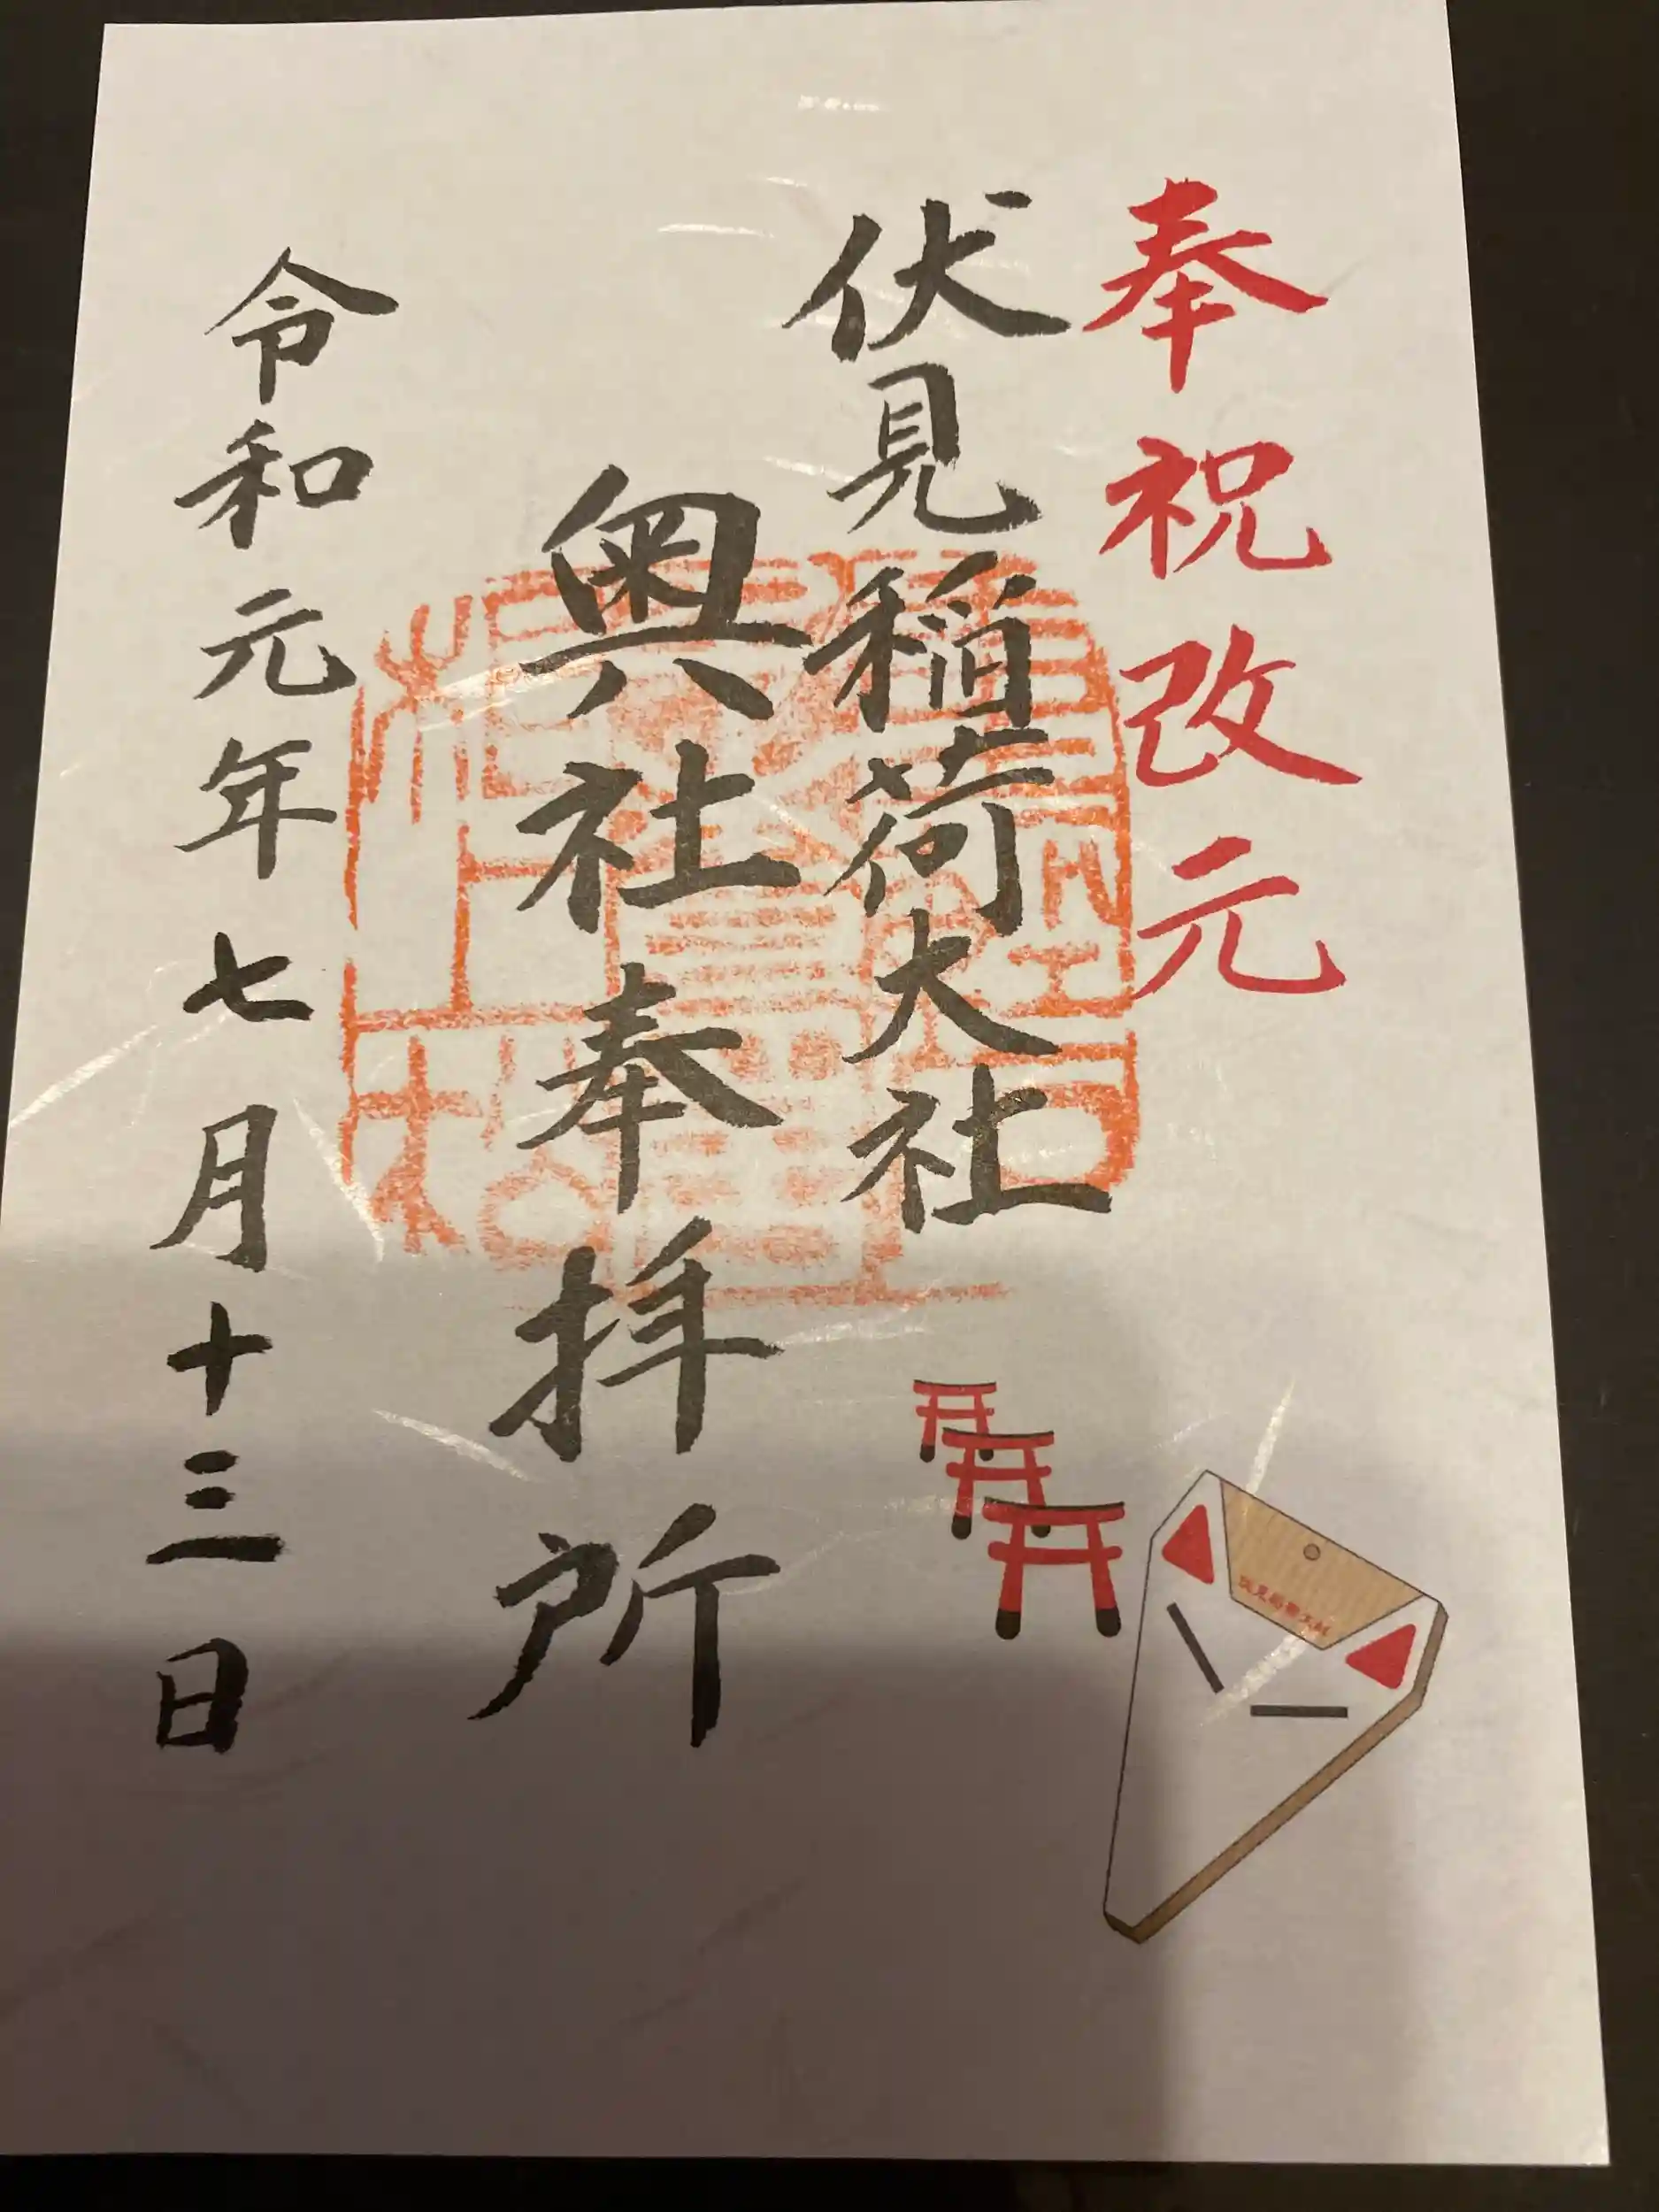 奉祝改元
伏見稲荷大社
奥社奉拝所
令和元年七月十三日
伏見稲荷大社